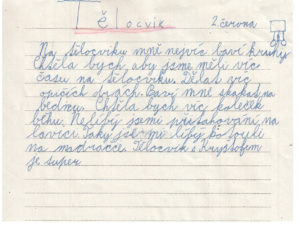 Tělocvik 2. června
Na tělocviku mně nejvíc baví kruhy.
Chtěla bych, aby jsme měli víc
času na tělocviku. Dělat víc
opičích drach. Baví mně skákat na
bednu. Chtěla bych víc koleček
běhu. Nelíbý jsemi přitahování na
lavici. Taky jse mi líbý kotouli
na madračce. Tělocvik s Kryštofem
je super